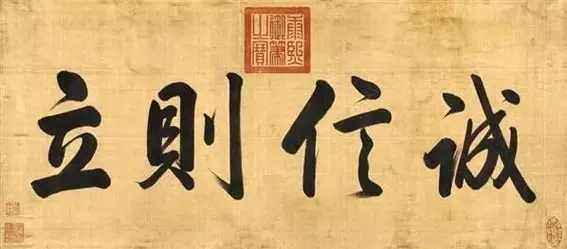 誠信則立
康熙御筆之寶